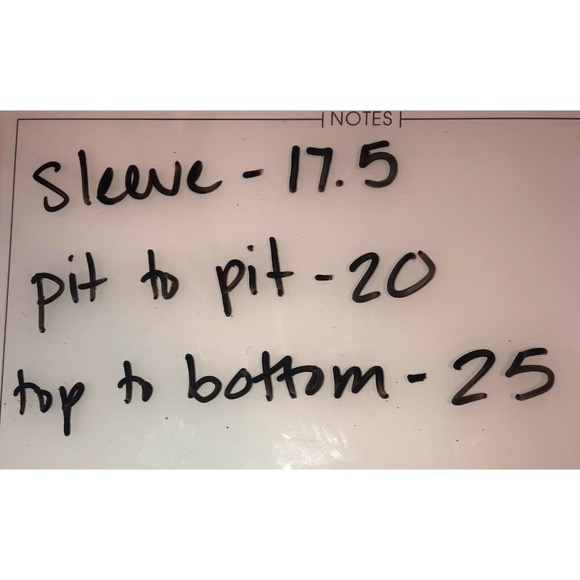 NOTES
Sleeve - 17.5
pit to pit - 20
top to bottom - 25